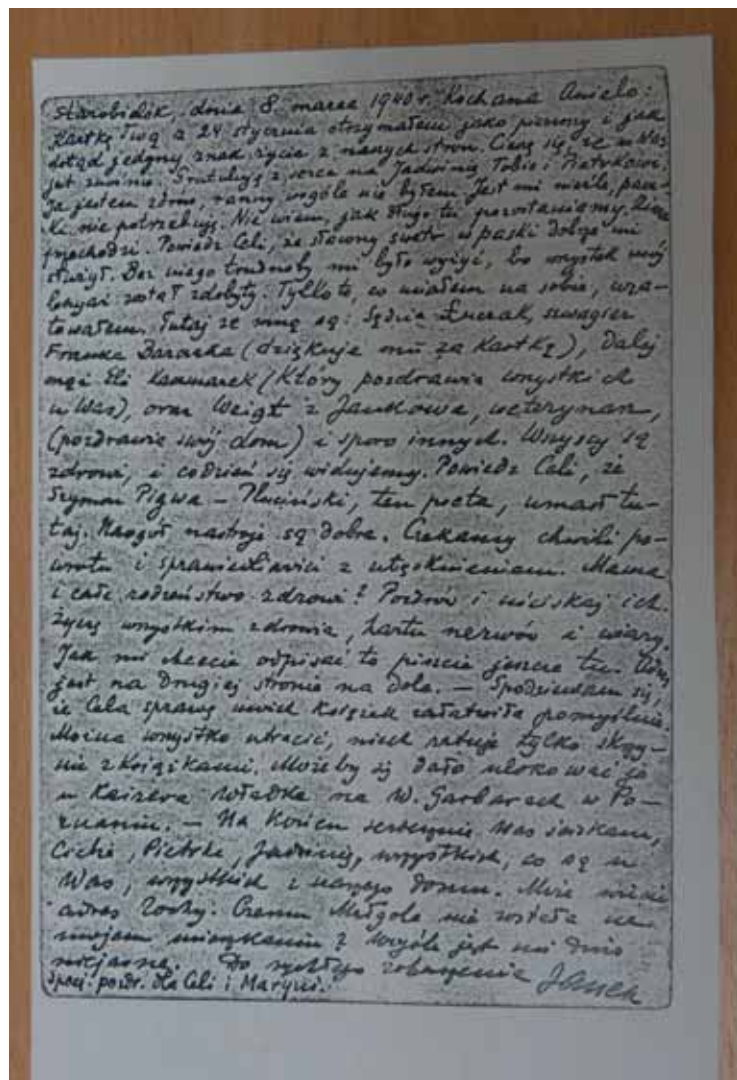 Starobielsk, dnia 8. marca 1940 r. Kochana Anielo:
Kartkę Twą z 24 stycznia otrzymałem jako pierwszy i jak
dotąd jedyny znak życia z naszych stron. Cieszę się, że u Was
jest znośnie. Gratuluję z serca na Jadwinię Tobie i Pietrkowi.
Ja jestem zdrów, ranny wogóle nie byłem. Jest mi nieźle, pacz-
ki nie potrzebuję. Nie wiem, jak długo tu pozostaniemy. Zima
przechodzi. Powiedz Celi, że sławny swetr w paski dobrze mi
służył. Bez niego trudnoby mi było wyżyć, bo wszystek mój
został zdobyty. Tylko to, co miałem na sobie, ura-
towałem. Tutaj ze mną są: Sędzia Łuczak, szwagier
Franka (dziękuję mu za kartkę), Dalej
mąż Eli Kaczmarek (który pozdrawia wszystkich
u Was), oraz Weigt z Jankowa, weterynarz,
(pozdrawia swój dom) i sporo innych. Wszyscy są
zdrowi, i codzień się widujemy. Powiedz Celi, że
Szymon Pigwa – Pluciński, ten poeta, umarł tu-
taj. Naogół nastroje są dobre. Czekamy chwili po-
wrotu i sprawiedliwości z utęsknieniem. Mama
i całe rodzeństwo zdrowi? Pozdrów i uściskaj ich.
Życzę wszystkim zdrowia, hartu nerwów i wiary.
Jak mi chcecie odpisać to piszcie jeszcze tu. Adres
jest na drugiej stronie na dole. — Spodziewam się,
że Cela sprawę mych książek załatwiła pomyślnie.
Można wszystko utracić, niech ratuje tylko skrzy-
nie z książkami. Możeby się dało ulokować je
u Kaisera Władka na W. Garbarach w Po-
znaniu. — Na koniec serdecznie Was ściskam,
Ciebie, Pietrka, Jadwinię, wszystkich, co są u
Was, wszystkich z naszego domu. Może wiecie
adres Zochy. Czemu nie została na
mojem mieszkaniu? Wogóle jest mi dużo
niejasne. Do rychłego zobaczenia Janek
Spec. pozdr. dla Celi i Maryni.